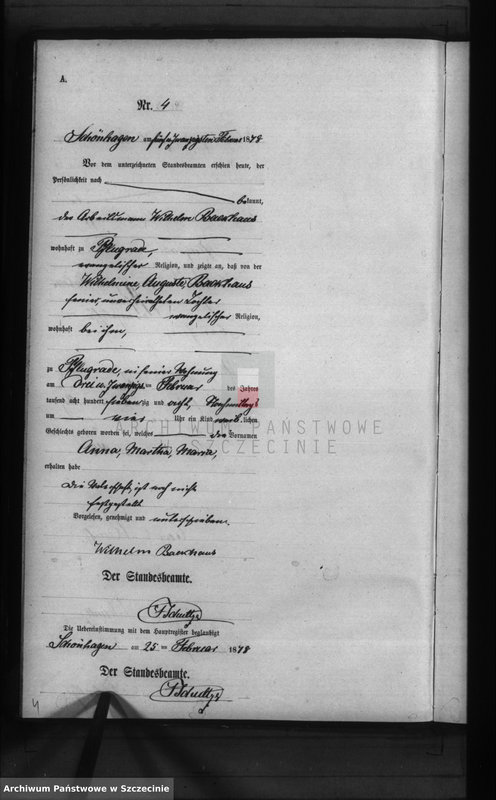 A.
Nr. 4
Schönhagen am fünfundzwanzigsten Februar 1878
Vor dem unterzeichneten Standesbeamten erschien heute, der
Persönlichkeit nach
bekannt,
der Arbeitsmann Wilhelm Backhaus
wohnhaft zu Pflugrade,
evangelischer Religion, und zeigte an, daß von der
Wilhelmine, Auguste, Backhaus
seiner unverheiratheten Tochter
evangelischer Religion,
wohnhaft bei ihm,
zu Pflugrade, in seiner Wohnung
am drei u. zwanzigs ten Februar des Jahres
tausend acht hundert siebenzig und acht, Nachmittags
um vier Uhr ein Kind weiblichen
Geschlechts geboren worden sei, welches die Vornamen
Anna, Martha, Maria,
erhalten habe
Die Vaterschaft ist noch nicht
festgestellt
Vorgelesen, genehmigt und unterschrieben.
Wilhelm Backhaus
Der Standesbeamte.
Schultz
Die Uebereinstimmung mit dem Hauptregister beglaubigt
Schönhagen am 25 ten Februar 1878
Der Standesbeamte.
Schultz
ARCHIWUM PAŃSTWOWE
W SZCZECINIE
Archiwum Państwowe w Szczecinie